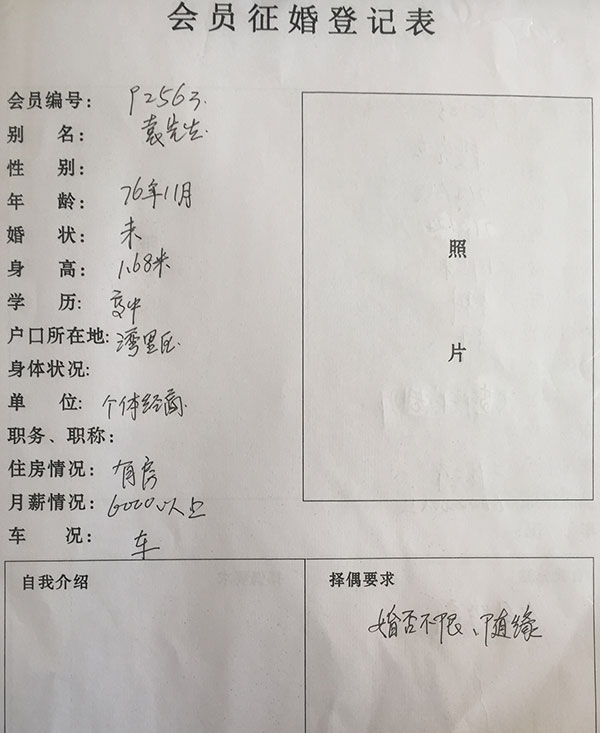 会员征婚登记表
会员编号： P2563
别 名： 袁先生
性 别：
年 龄： 76年11月
婚 状： 未
身 高： 1.68米
学 历： 高中
户口所在地: 湾里区
身体状况:
单 位： 个体经商
职务、职称：
住房情况： 有房
月薪情况： 6000以上
车 况： 车
照
片
自我介绍
择偶要求
婚否不限、随缘